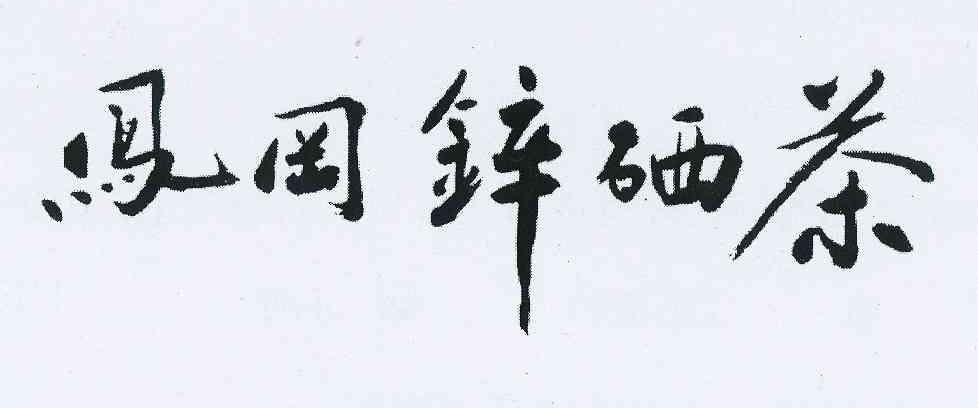 鳳岡鋅硒茶